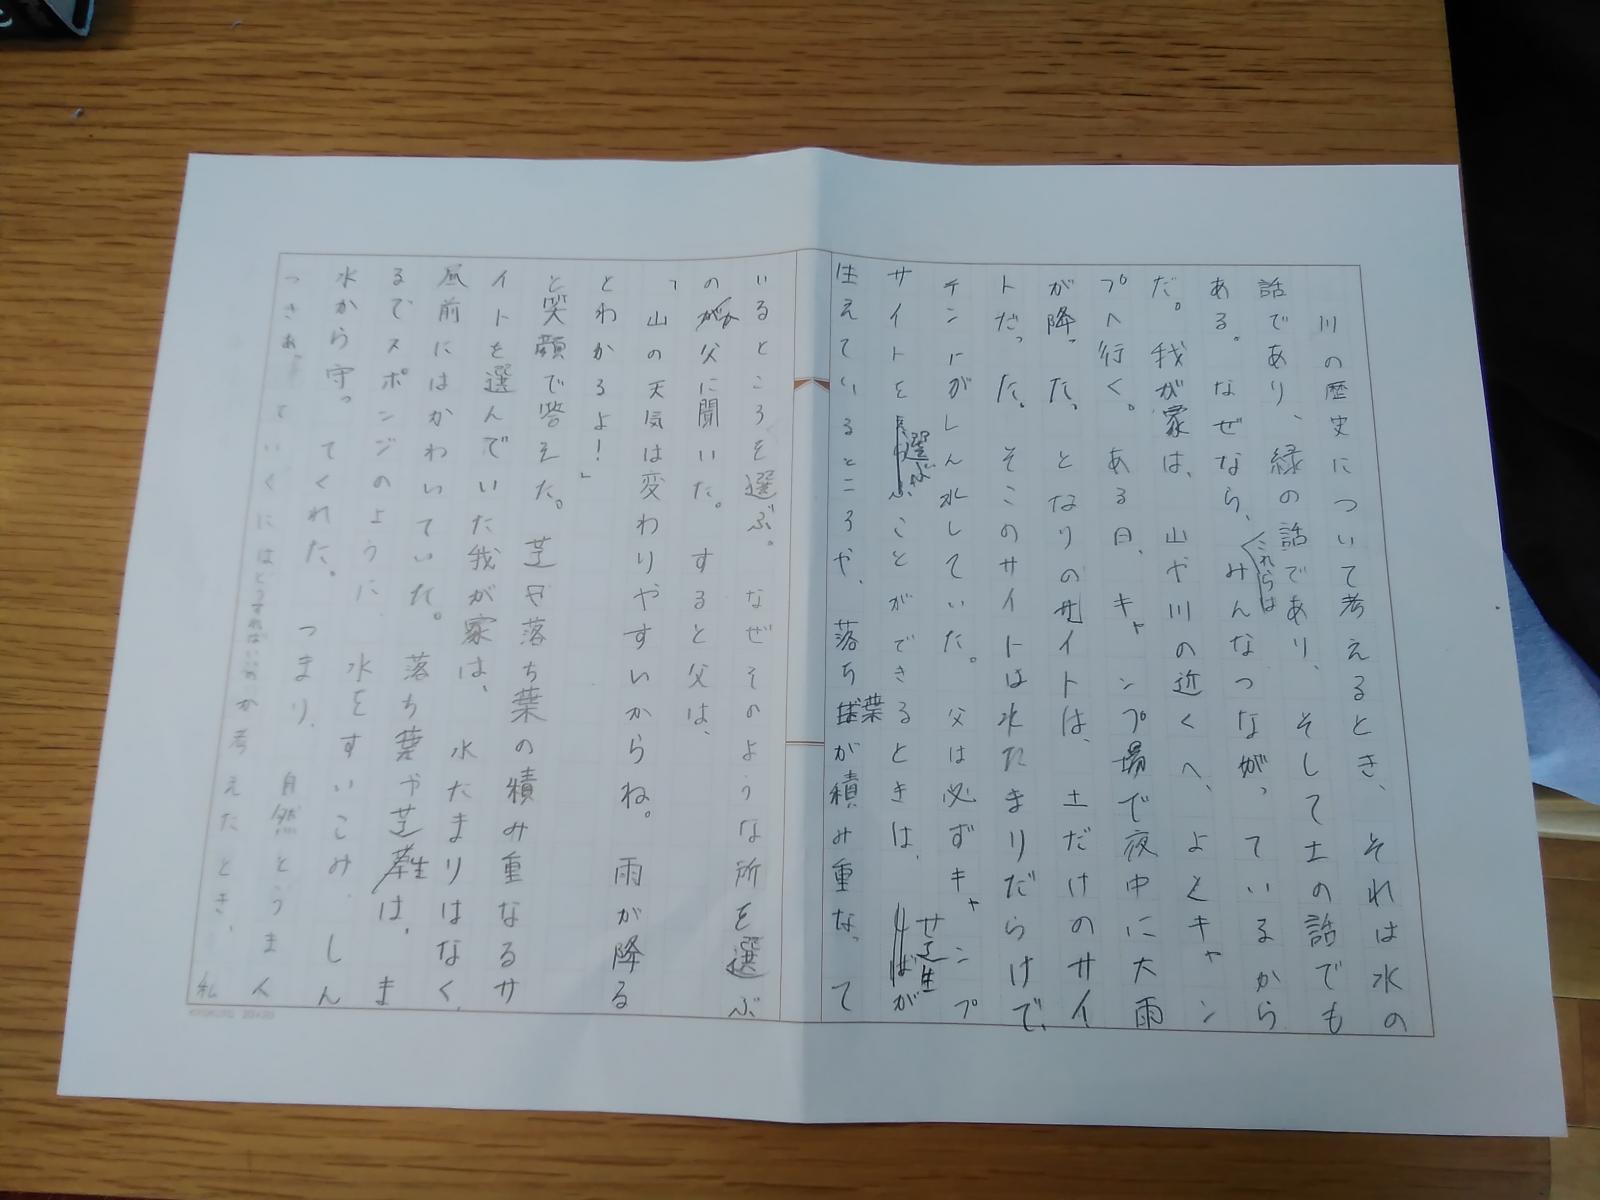 川の歴史について考えるとき、それは水の
話であり、緑の話であり、そして土の話でも
ある。なぜなら、これらはみんなつながっているから
だ。我が家は、山や川の近くへ、よくキャン
プへ行く。ある日、キャンプ場で夜中に大雨
が降った。となりのサイトは、土だけのサイ
トだった。そこのサイトは水たまりだらけで、
テントがしん水していた。父は必ずキャンプ
サイトを選ぶことができるときは、芝生が
生えているところや、落ち葉が積み重なって
いるところを選ぶ。なぜそのような所を選ぶ
のか父に聞いた。すると父は、
「山の天気は変わりやすいからね。雨が降る
とわかるよ！」
と笑顔で答えた。芝や落ち葉の積み重なるサ
イトを選んでいた我が家は、水たまりはなく、
昼前にはかわいていた。落ち葉や芝生は、ま
るでスポンジのように、水をすいこみ、しん
水から守ってくれた。つまり、自然とうまく
つきあっていくにはどうすればいいのか考えたとき、私
KYOKUTO 20×20